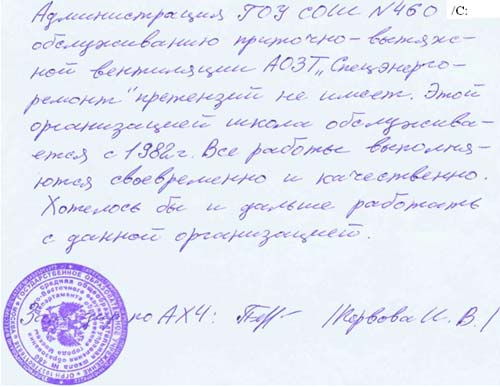 Администрация ГОУ СОШ №460 /С:
обслуживанию приточно-вытяж-
ной вентиляции АОЗТ „Спецэнерго-
ремонт" претензий не имеет. Этой
организацией школа обслужива-
ется с 1982г. Все работы выполня-
ются своевременно и качественно.
Хотелось бы и дальше работать
с данной организацией.
АХЧ: И. В./